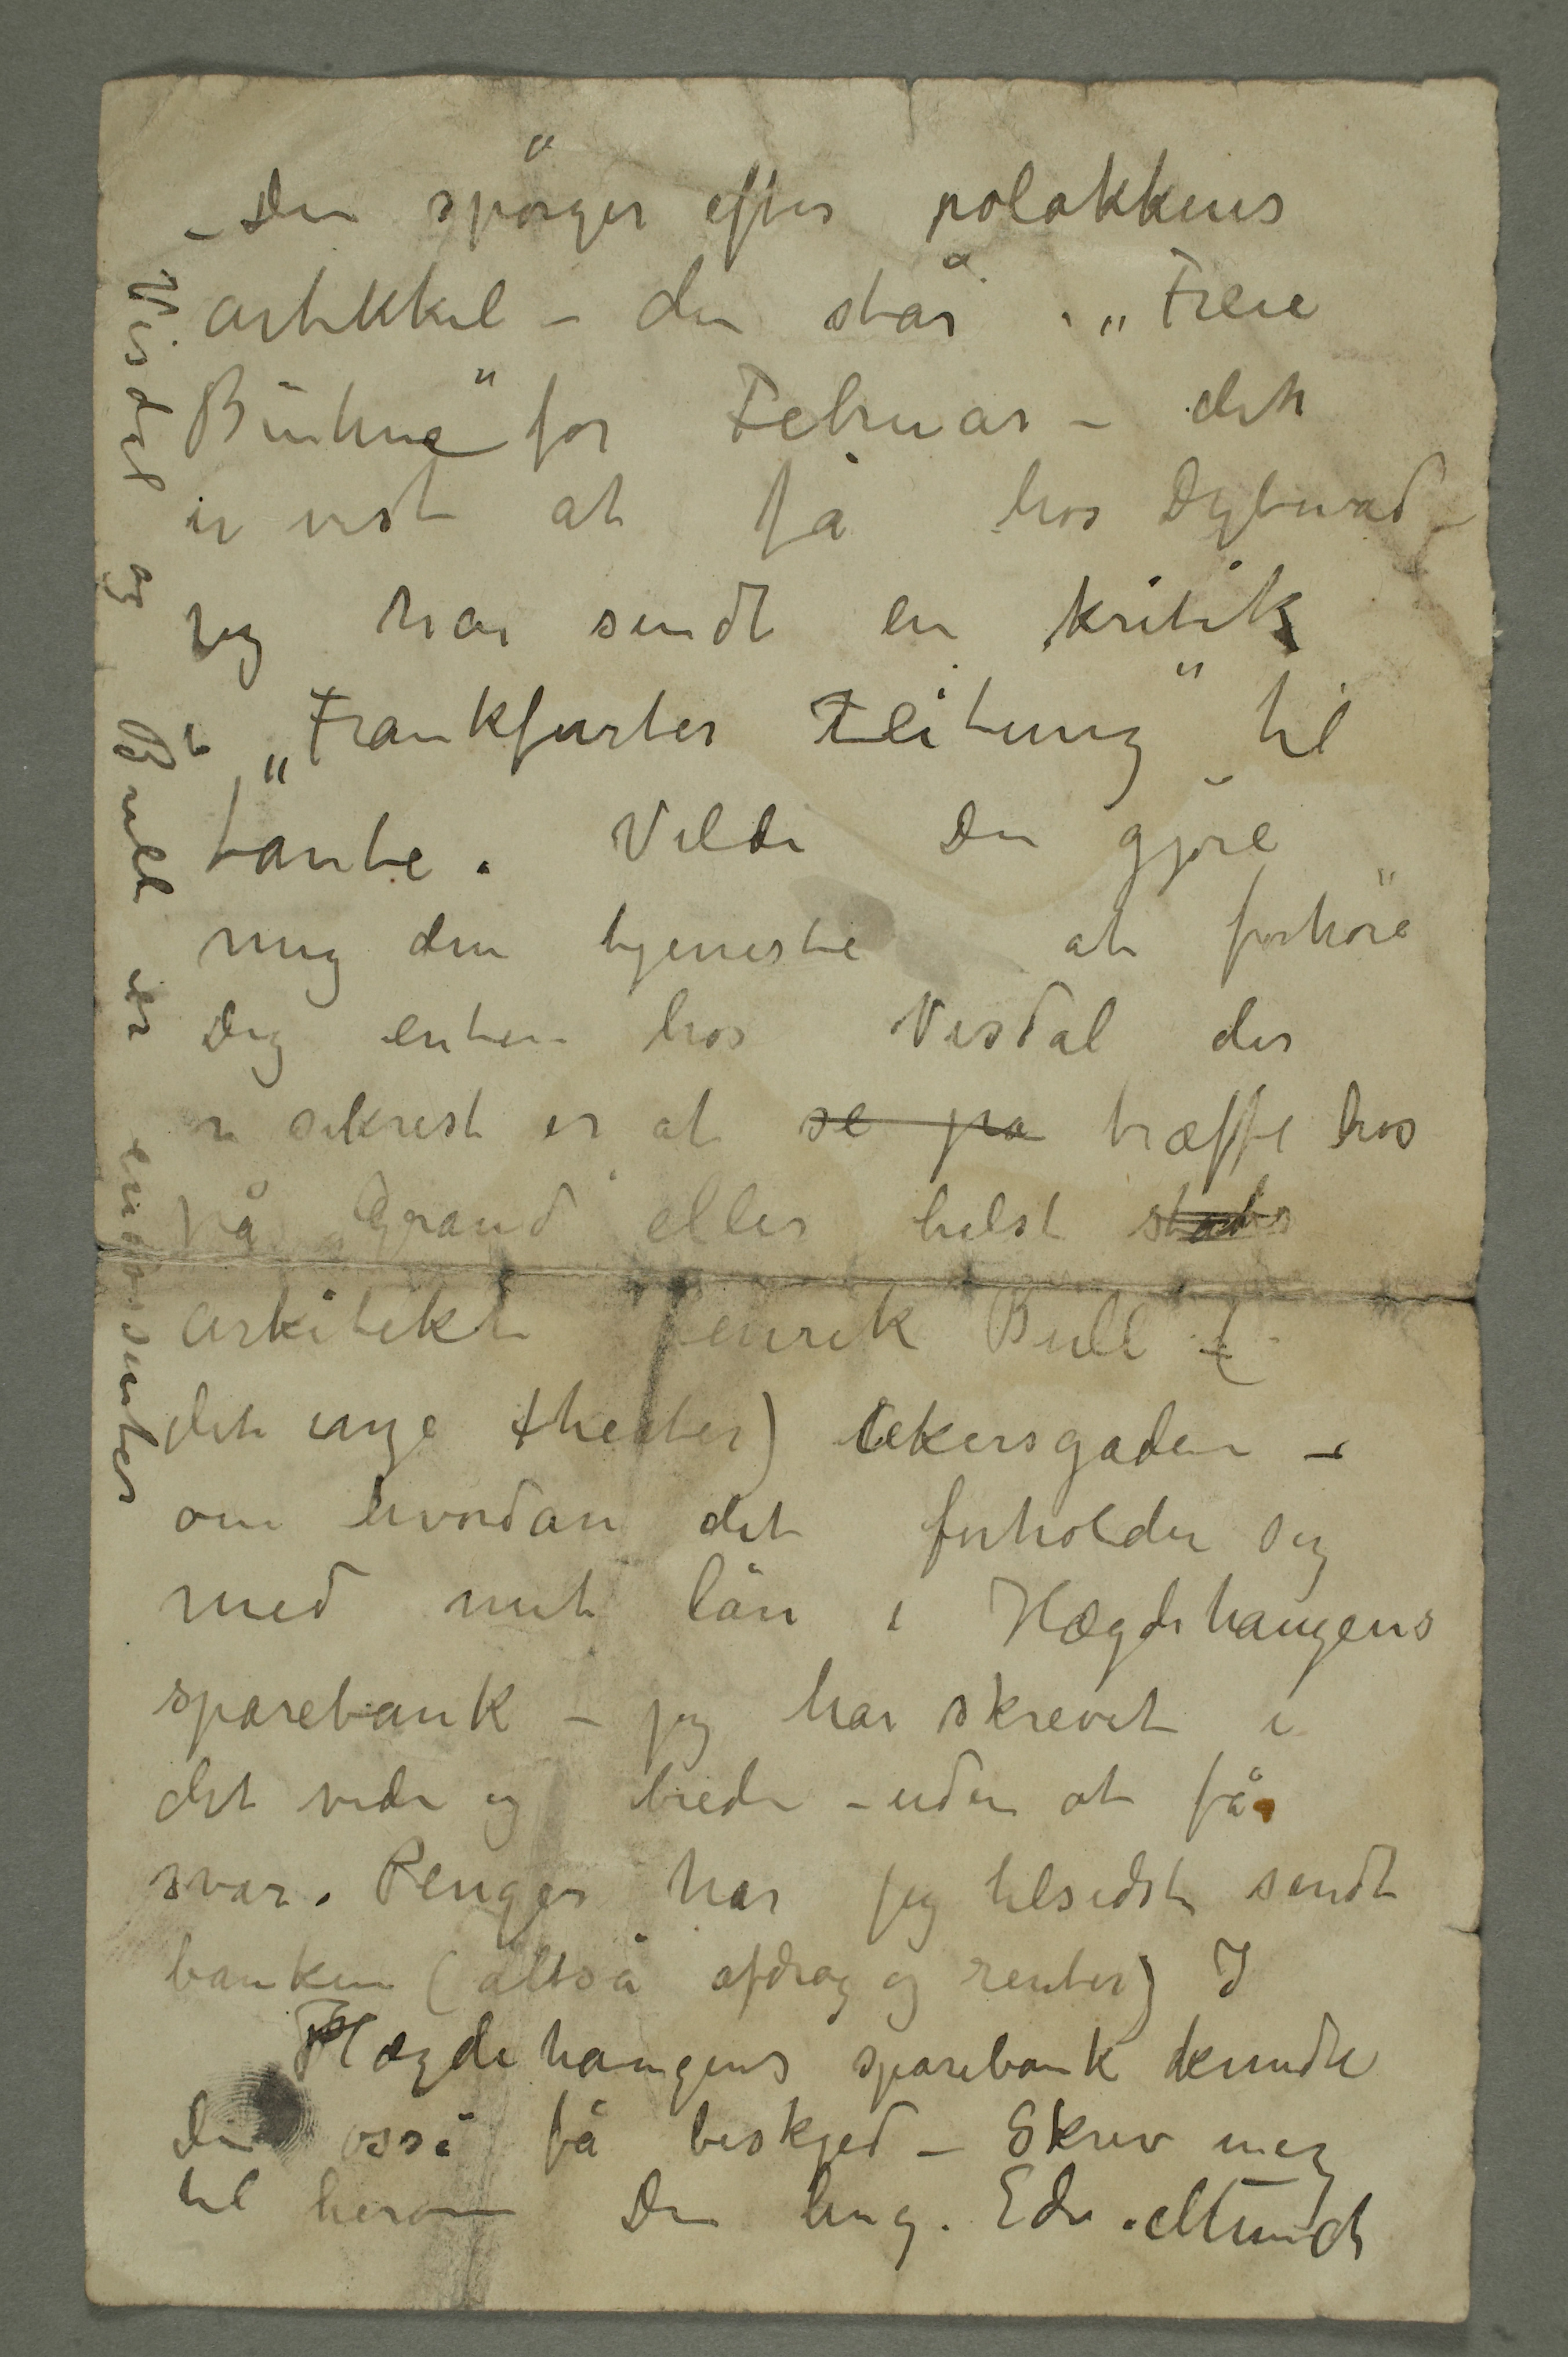 – Du spörger efter polakkens
artikkel – den står i „Freie
Bühne" for Februar – det
er vist at få hos Dybwad –
Jeg har sendt en kritik
i „Frankfurter Zeitung" til
tante. Vilde Du gjöre
mig den tjeneste at forhöre
Dig enten hos Visdal der
sikrest er at se på træffe hos
på Grand eller helst
arkitekt Henrik Bull (
det unge theater) Akersgaden –
om hvordan det forholder sig
med mit lån i Hægdehaugens
sparebank – jeg har skrevet i
det vide og brede – uden at få
svar. Penger har jeg tilsidst sendt
banken (altså afdrag og renter) I
Hægdehaugens sparebank kunde
Du også få beskjed – Skriv mig
til herom Din heng. Edv. Munch
Visdal og Bull er endossenter